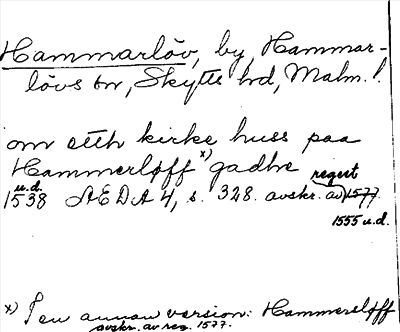 Hammarlöv, by, Hammar-
lövs sn, Skytts hd, Malm. l.
om etth kirke huss paa
Hammerløff x) gadhe
u.d. regist
1538 AEDA 4, s. 328. avskr. av 1577
1555 u.d.
x) I en annan version: Hammersløff
avskr. av reg. 1577.